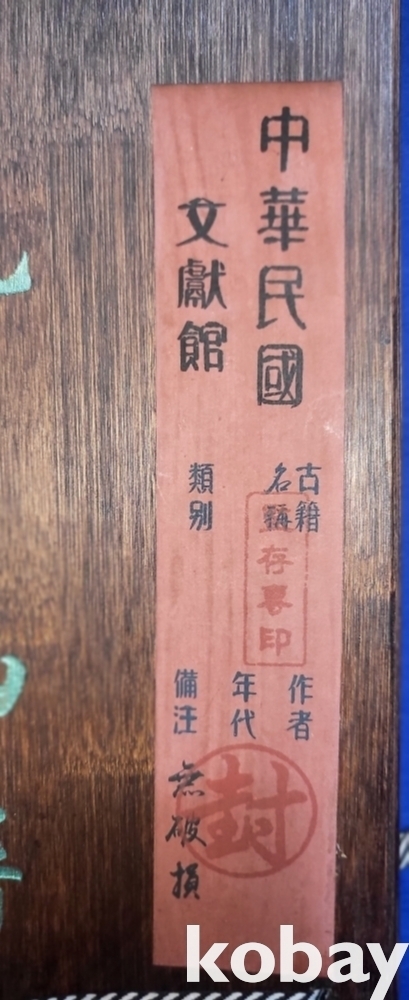 中華民國
文獻館
古籍
名稱
類别
存專印
作者
年代
備注
無破損
封
kobay